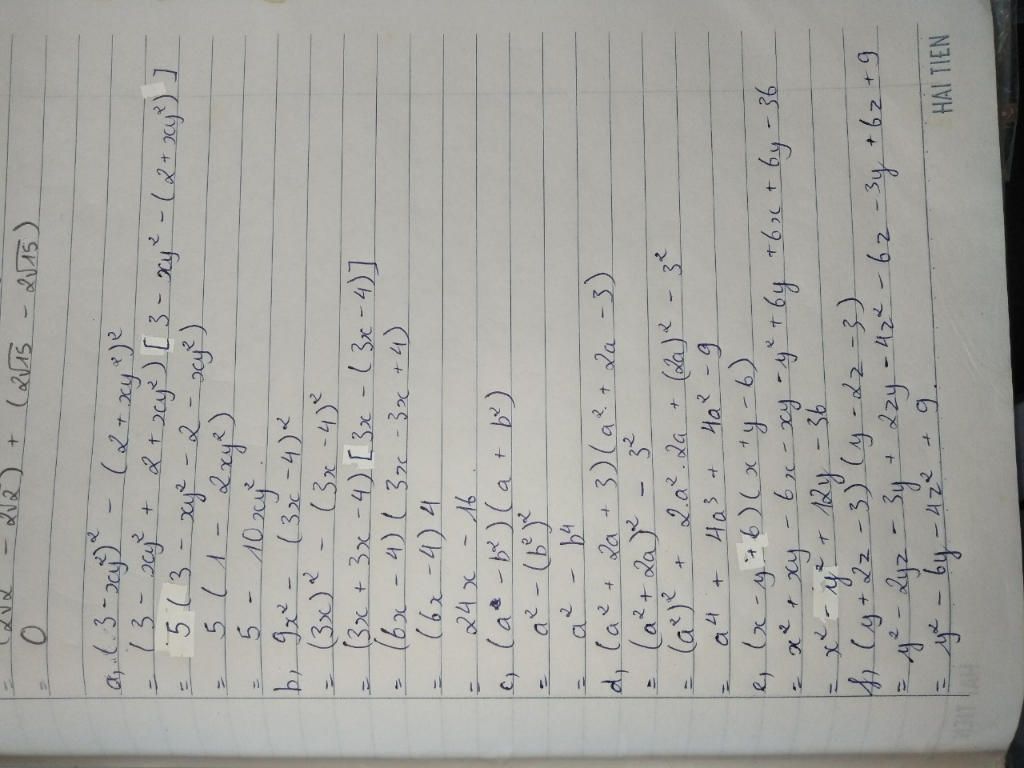 = (2√2 - 2√2) + (2√15 - 2√15)
= 0
a, (3 - xy²)² - (2 + xy²)²
= (3 - xy² + 2 + xy²) [3 - xy² - (2 + xy²)]
= 5 (3 - xy² - 2 - xy²)
= 5 (1 - 2xy²)
= 5 - 10xy²
b, 9x² - (3x - 4)²
= (3x)² - (3x - 4)²
= (3x + 3x - 4) [3x - (3x - 4)]
= (6x - 4) (3x - 3x + 4)
= (6x - 4) 4
= 24x - 16
c, (a - b²) (a + b²)
= a² - (b²)²
= a² - b⁴
d, (a² + 2a + 3) (a² + 2a - 3)
= (a² + 2a)² - 3²
= (a²)² + 2.a².2a + (2a)² - 3²
= a⁴ + 4a³ + 4a² - 9
e, (x - y + 6) (x + y - 6)
= x² + xy - 6x - xy - y² + 6y + 6x + 6y - 36
= x² - y² + 12y - 36
f, (y + 2z - 3) (y - 2z - 3)
= y² - 2yz - 3y + 2zy - 4z² - 6z - 3y + 6z + 9
= y² - 6y - 4z² + 9.
HAI TIEN